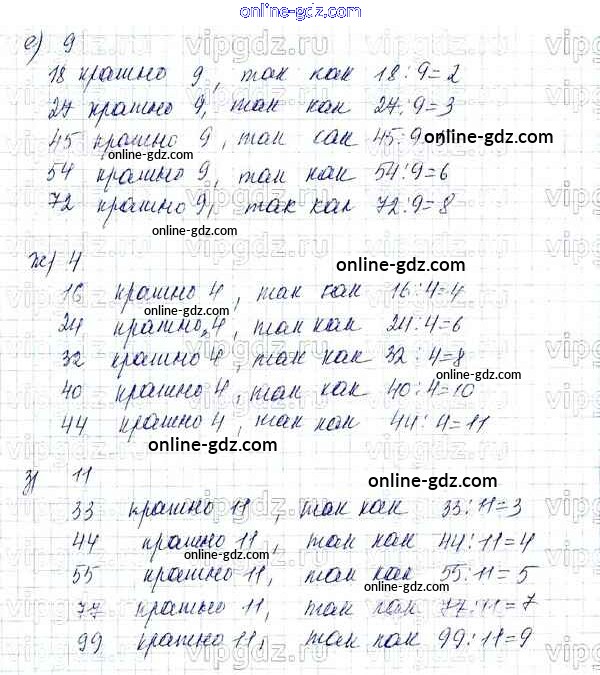 online-gdz.com
е) 9
18 кратно 9, так как 18:9=2
27 кратно 9, так как 27:9=3
45 кратно 9, так как 45:9=5
online-gdz.com
54 кратно 9, так как 54:9=6
72 кратно 9, так как 72:9=8
online-gdz.com
ж) 4
online-gdz.com
16 кратно 4, так как 16:4=4
online-gdz.com
24 кратно 4, так как 24:4=6
32 кратно 4, так как 32:4=8
online-gdz.com
40 кратно 4, так как 40:4=10
44 кратно 4, так как 44:4=11
online-gdz.com
з) 11
online-gdz.com
33 кратно 11, так как 33:11=3
44 кратно 11, так как 44:11=4
online-gdz.com
55 кратно 11, так как 55:11=5
online-gdz.com
77 кратно 11, так как 77:11=7
99 кратно 11, так как 99:11=9
online-gdz.com
vipgdz.ru